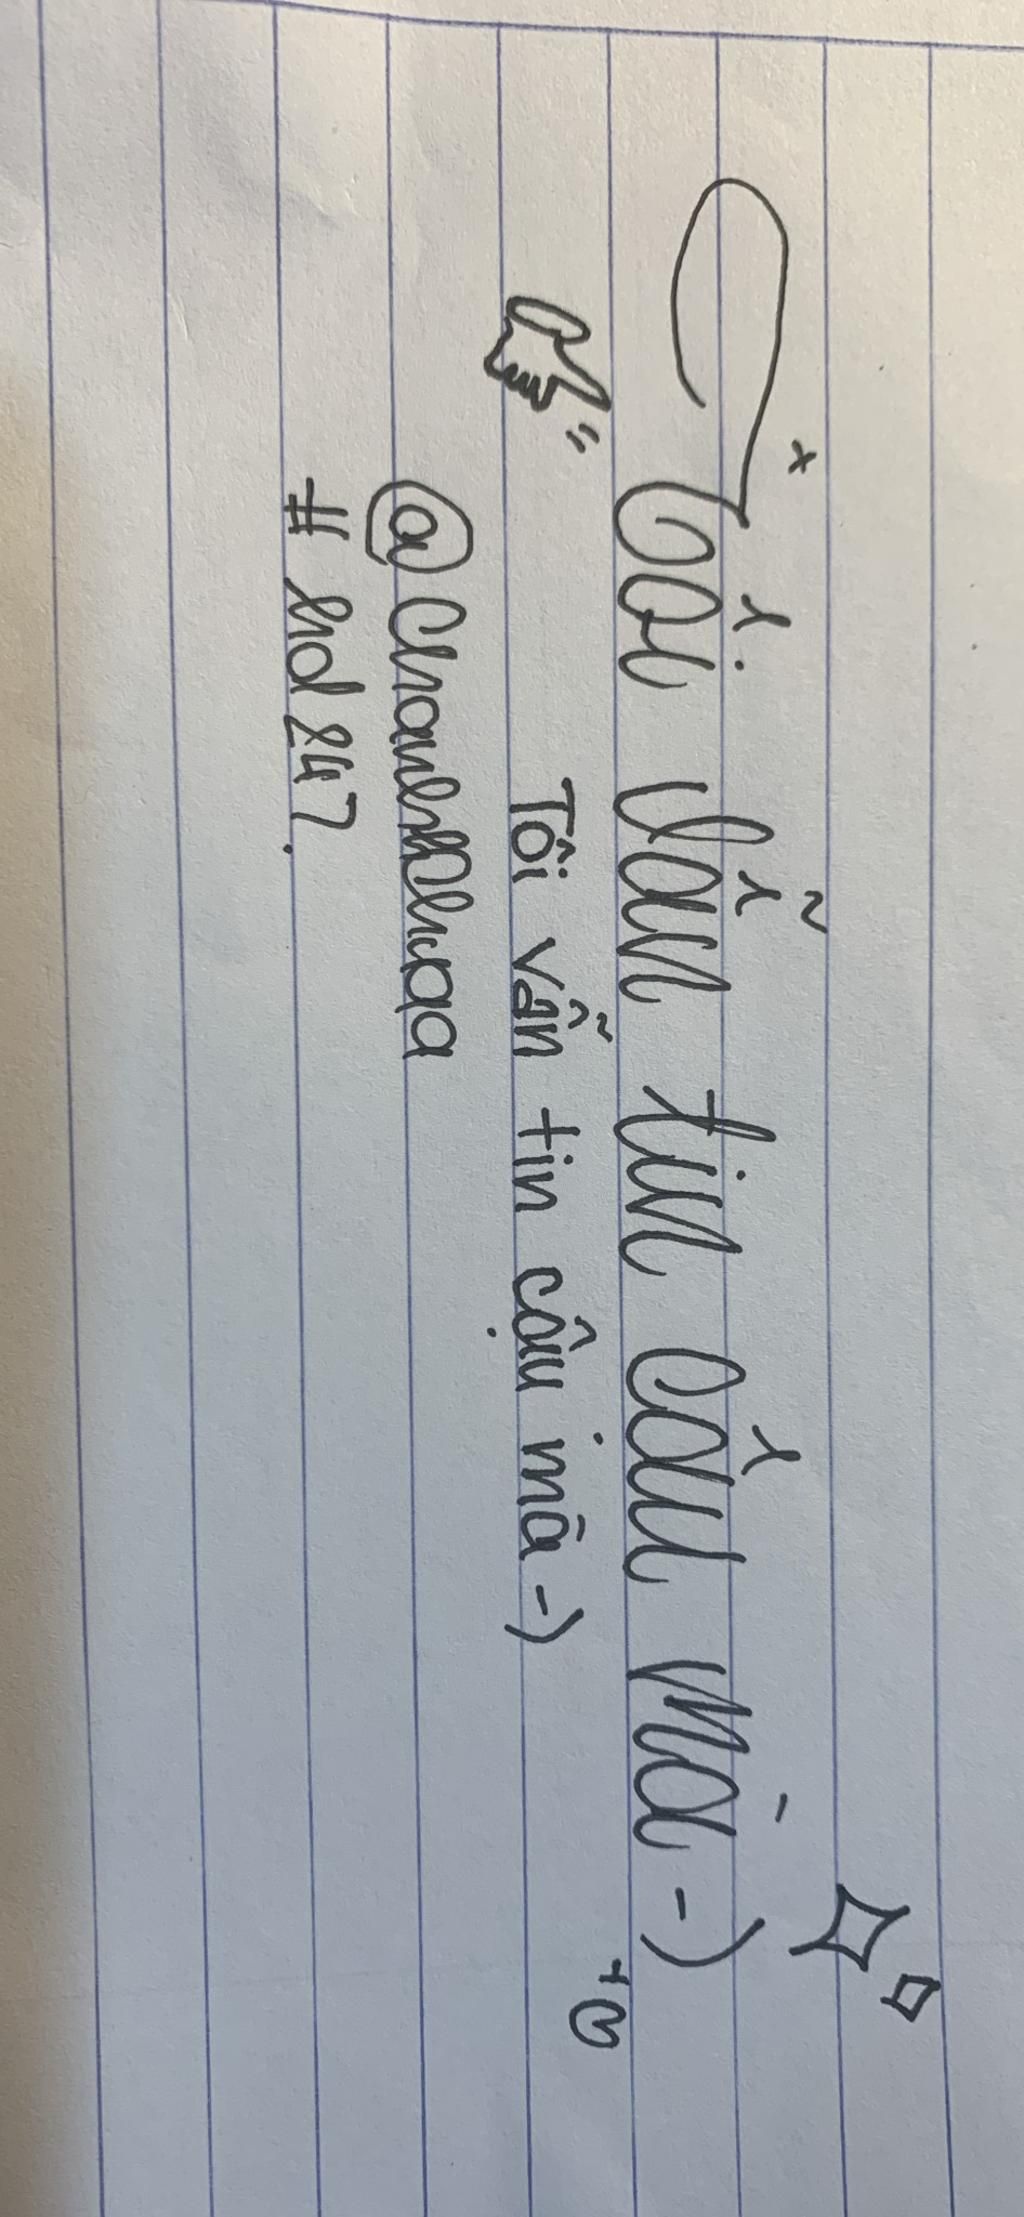 Tôi vẫn tin cậu mà -)
Tôi vẫn tin cậu mà -)
# hd 247.